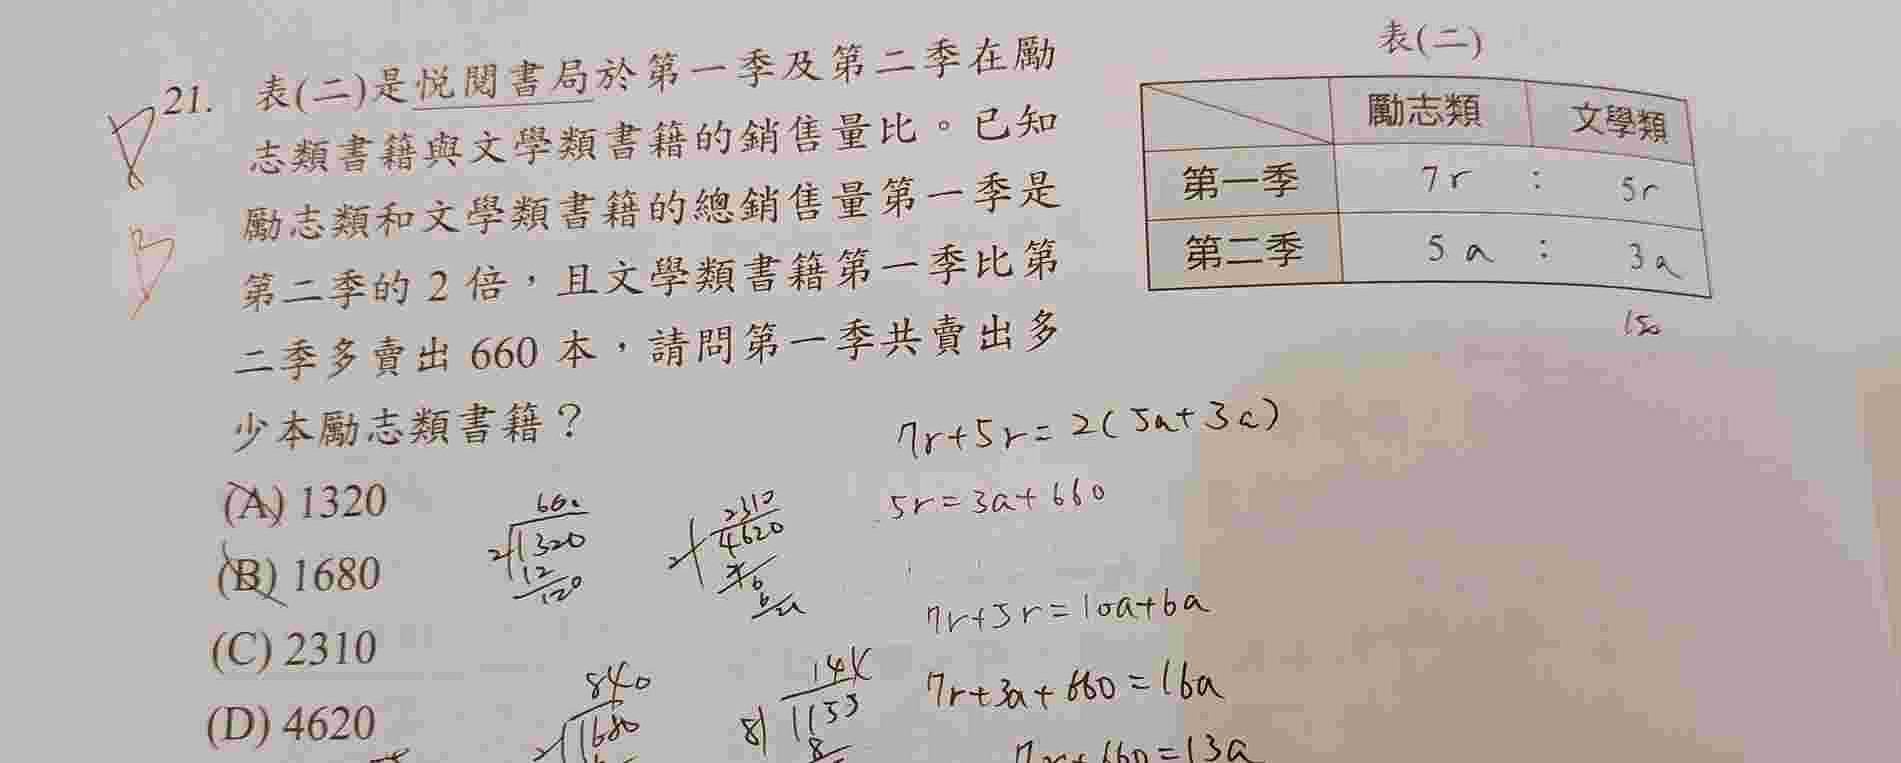 表(二)
21. 表(二)是悅閱書局於第一季及第二季在勵
志類書籍與文學類書籍的銷售量比。已知
勵志類和文學類書籍的總銷售量第一季是
第二季的 2 倍，且文學類書籍第一季比第
二季多賣出 660 本，請問第一季共賣出多
少本勵志類書籍？
(A) 1320
(B) 1680
(C) 2310
(D) 4620
勵志類 文學類
第一季 7r : 5r
第二季 5a : 3a
7r+5r=2(5a+3a)
5r=3a+660
7r+5r=10a+6a
7r+3a+660=16a
7r+660=13a
660
2 1320
12
120
2310
2 4620
840
2 1680
8 1155
8